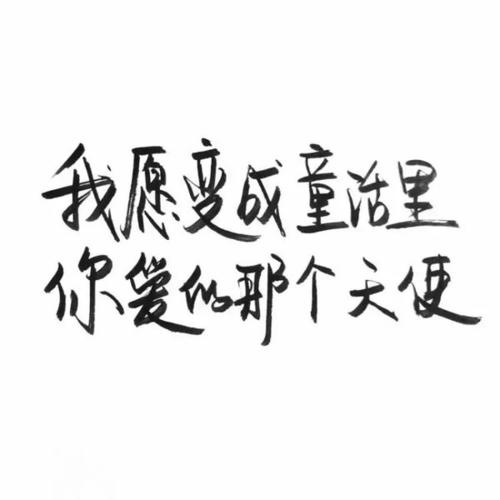 我愿变成童话里
你爱的那个天使